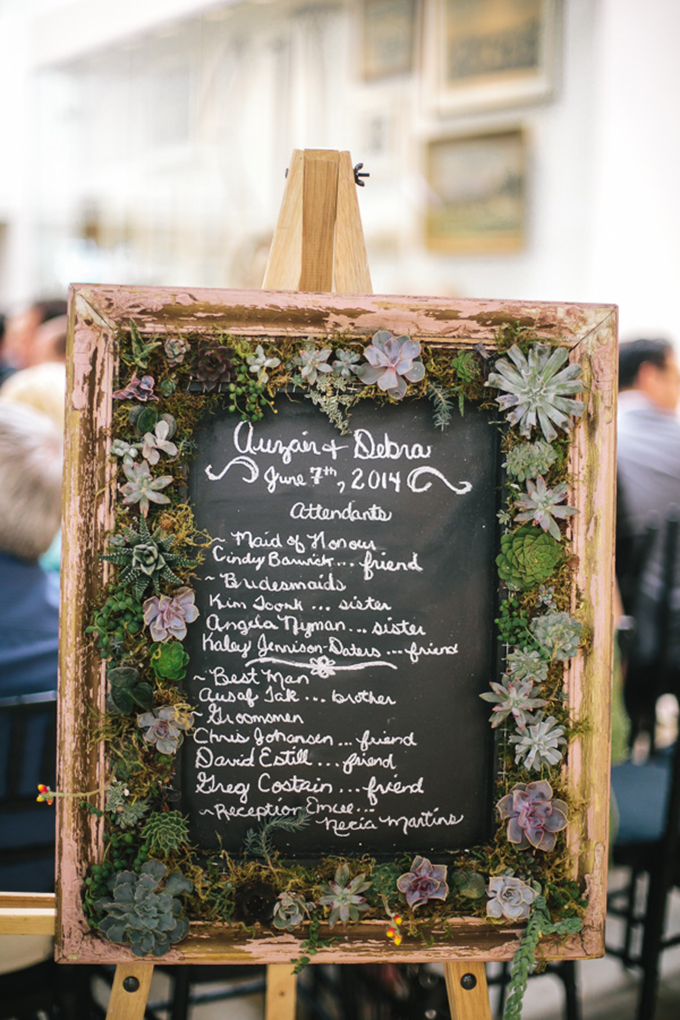 Auzair + Debra
June 7th, 2014
Attendants
~ Maid of Honour
Cindy Barwick... friend
~ Bridesmaids
Kim Toonk ... sister
Angela Nyman... sister
Kaley Jennison-Daters ...friend
~ Best Man
Ausaf Tak... brother
~ Groomsmen
Chris Johansen ... friend
David Estill ... friend
Greg Costain ... friend
~ Reception Emcee...
Neria Martins